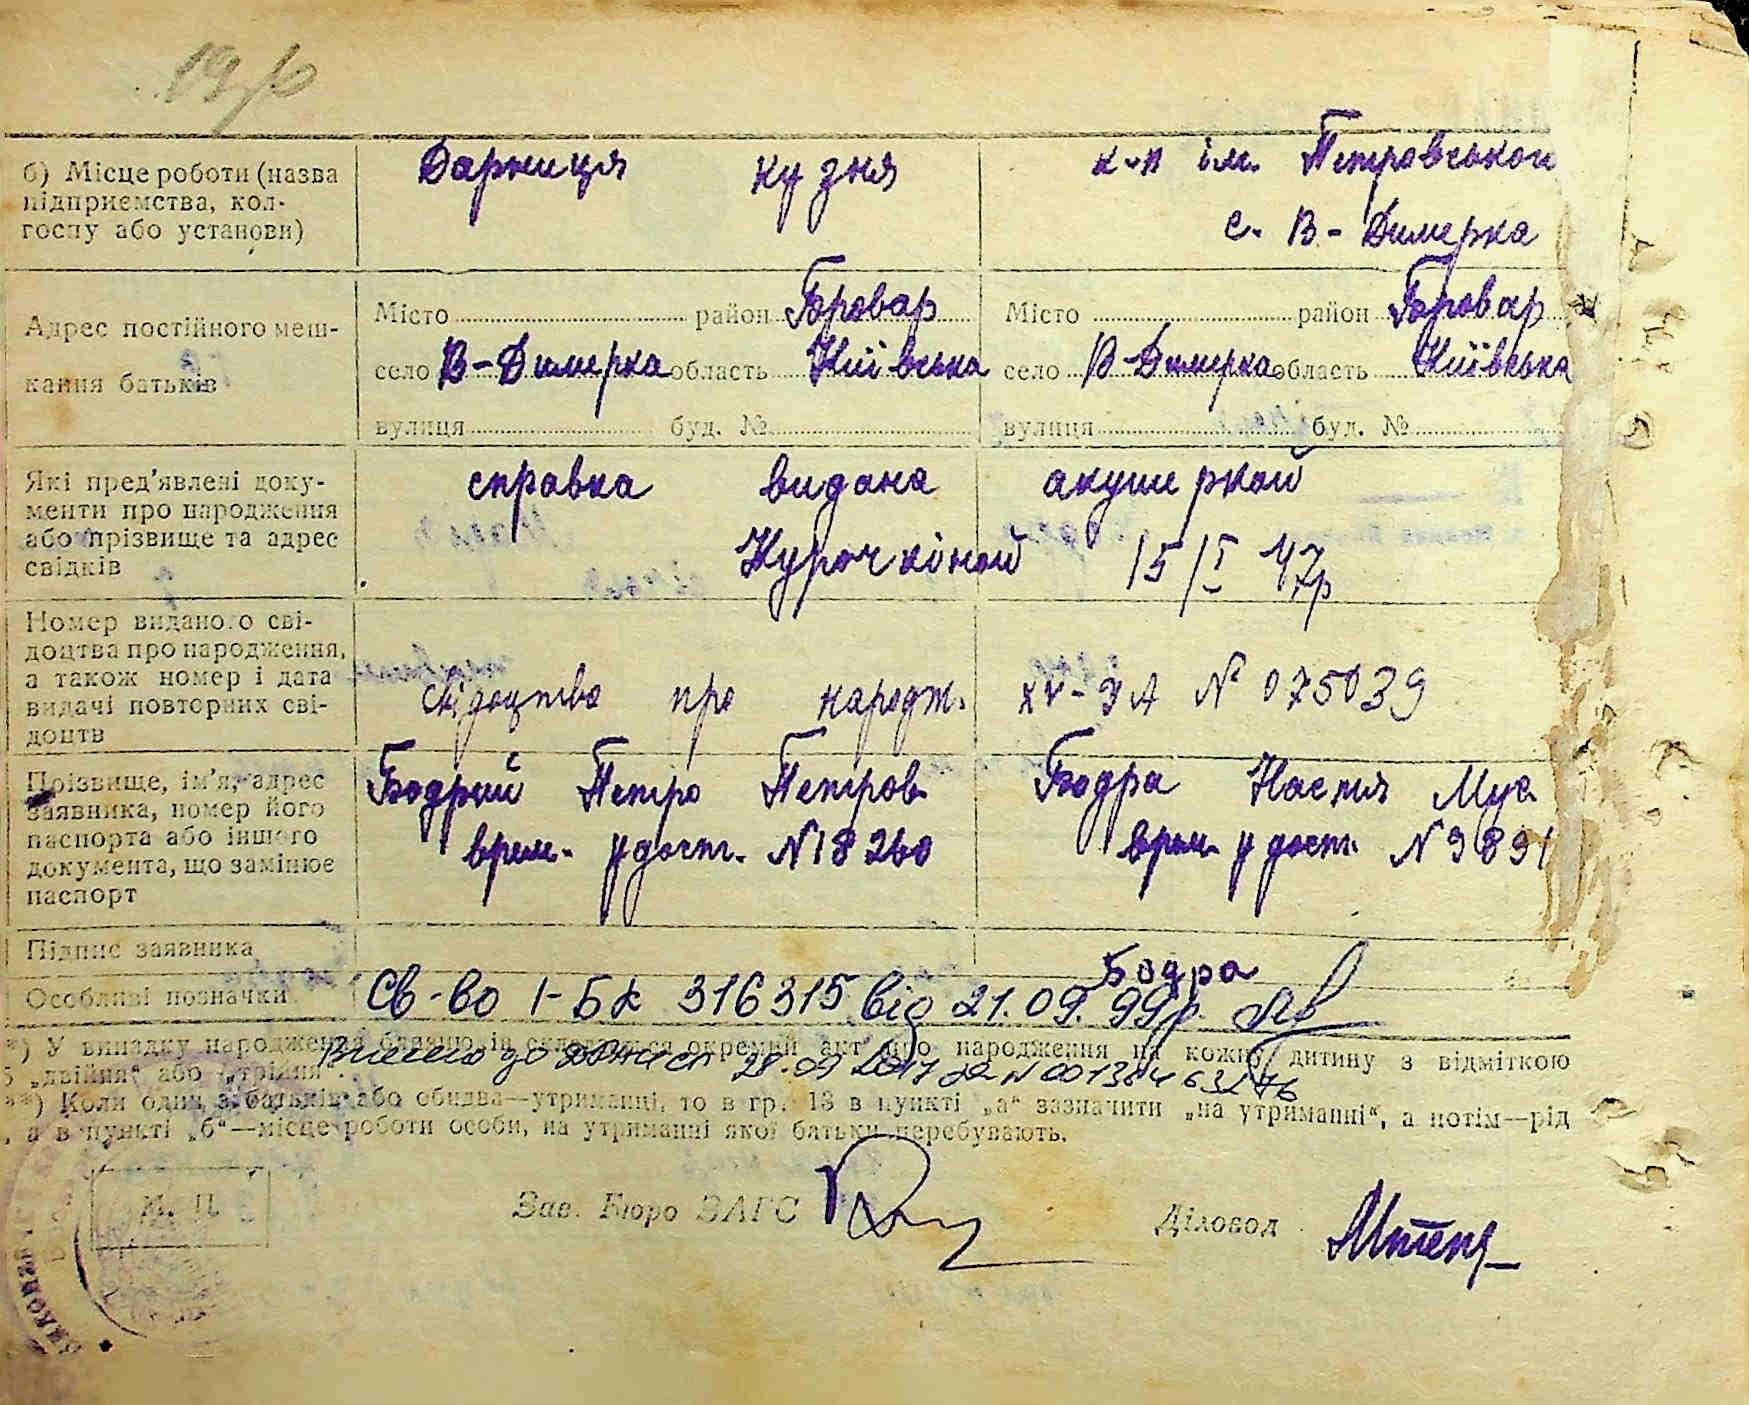 19 р
б) Місце роботи (назва
підприємства, кол-
госпу або установи)
Дарниця кузня
к-п ім. Петровського
с. В-Димерка
Адрес постійного меш-
кання батьків
Місто район Бровар
село В-Димерка область Київська
вулиця буд. №
Місто район Бровар
село В-Димерка область Київська
вулиця буд. №
Які пред'явлені доку-
менти про народження
або прізвище та адрес
свідків
справка видана акушеркой
Курочкіной 15/I 47р
Номер виданого сві-
доцтва про народження,
а також номер і дата
видачі повторних сві-
доцтв
свідоцтво про народж. XV-УА № 075039
Прізвище, ім'я, адрес
заявника, номер його
паспорта або іншого
документа, що замінює
паспорт
Бодрий Петро Петров.
врем. удост. N18260
Бодра Настя Мус.
врем. удост. N 9891
Підпис заявника
Бодра
Особливі позначки
Св-во І-БК 316315 від 21.09.99р.
*) У випадку народження близнюків складається окремий акт про народження на кожну дитину з відміткою
„двійня“ або „трійня“.
Внесено до 28.09 2017 за N 00138463276
**) Коли один з батьків або обидва—утриманці, то в гр. 13 в пункті „а“ зазначити „на утриманні“, а потім—рід
, а в пункті „б“—місце роботи особи, на утриманні якої батьки перебувають.
М. П.
Зав. Бюро ЗАГС
Діловод